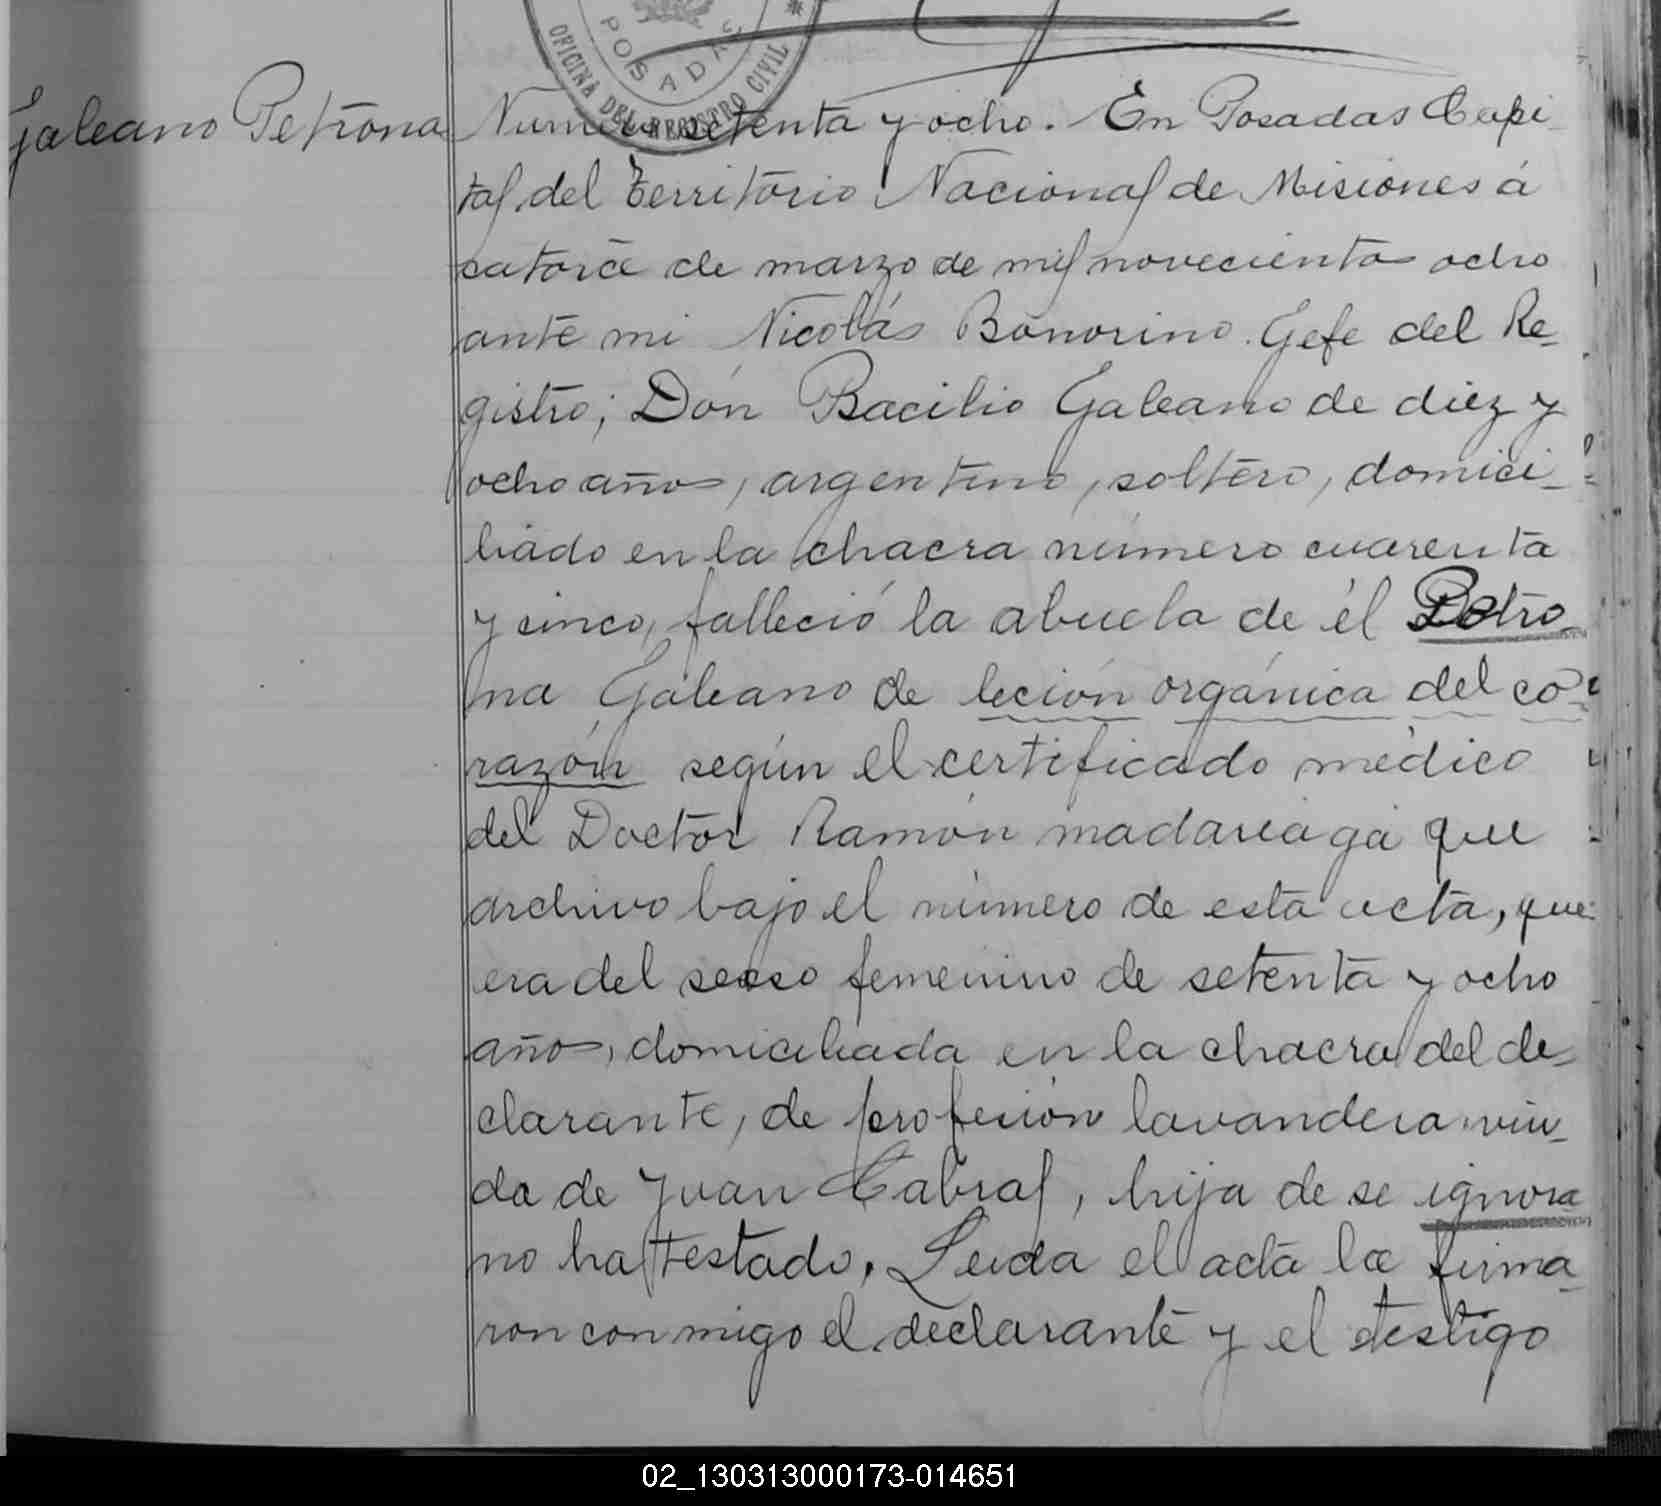 POSADAS
OFICINA DEL REGISTRO CIVIL
Galeano Petrona
Numero setenta y ocho. En Posadas Capi-
tal del Territorio Nacional de Misiones á
catorce de marzo de mil novecientos ocho
ante mi Nicolás Bonorino Gefe del Re-
gistro; Dón Bacilio Galeano de diez y
ocho años, argentino, soltero, domici-
liado en la chacra número cuarenta
y cinco, falleció la abuela de él Petro
na Galeano de leción orgánica del co-
razón según el certificado médico
del Doctor Ramón madariaga que
archivo bajo el número de esta acta, que
era del secso femenino de setenta y ocho
años, domiciliada en la chacra del de-
clarante, de profesión lavandera viu-
da de Juan Cabral, hija de se ignora
no ha testado. Leida el acta la firma-
ron conmigo el declarante y el testigo
02_130313000173-014651